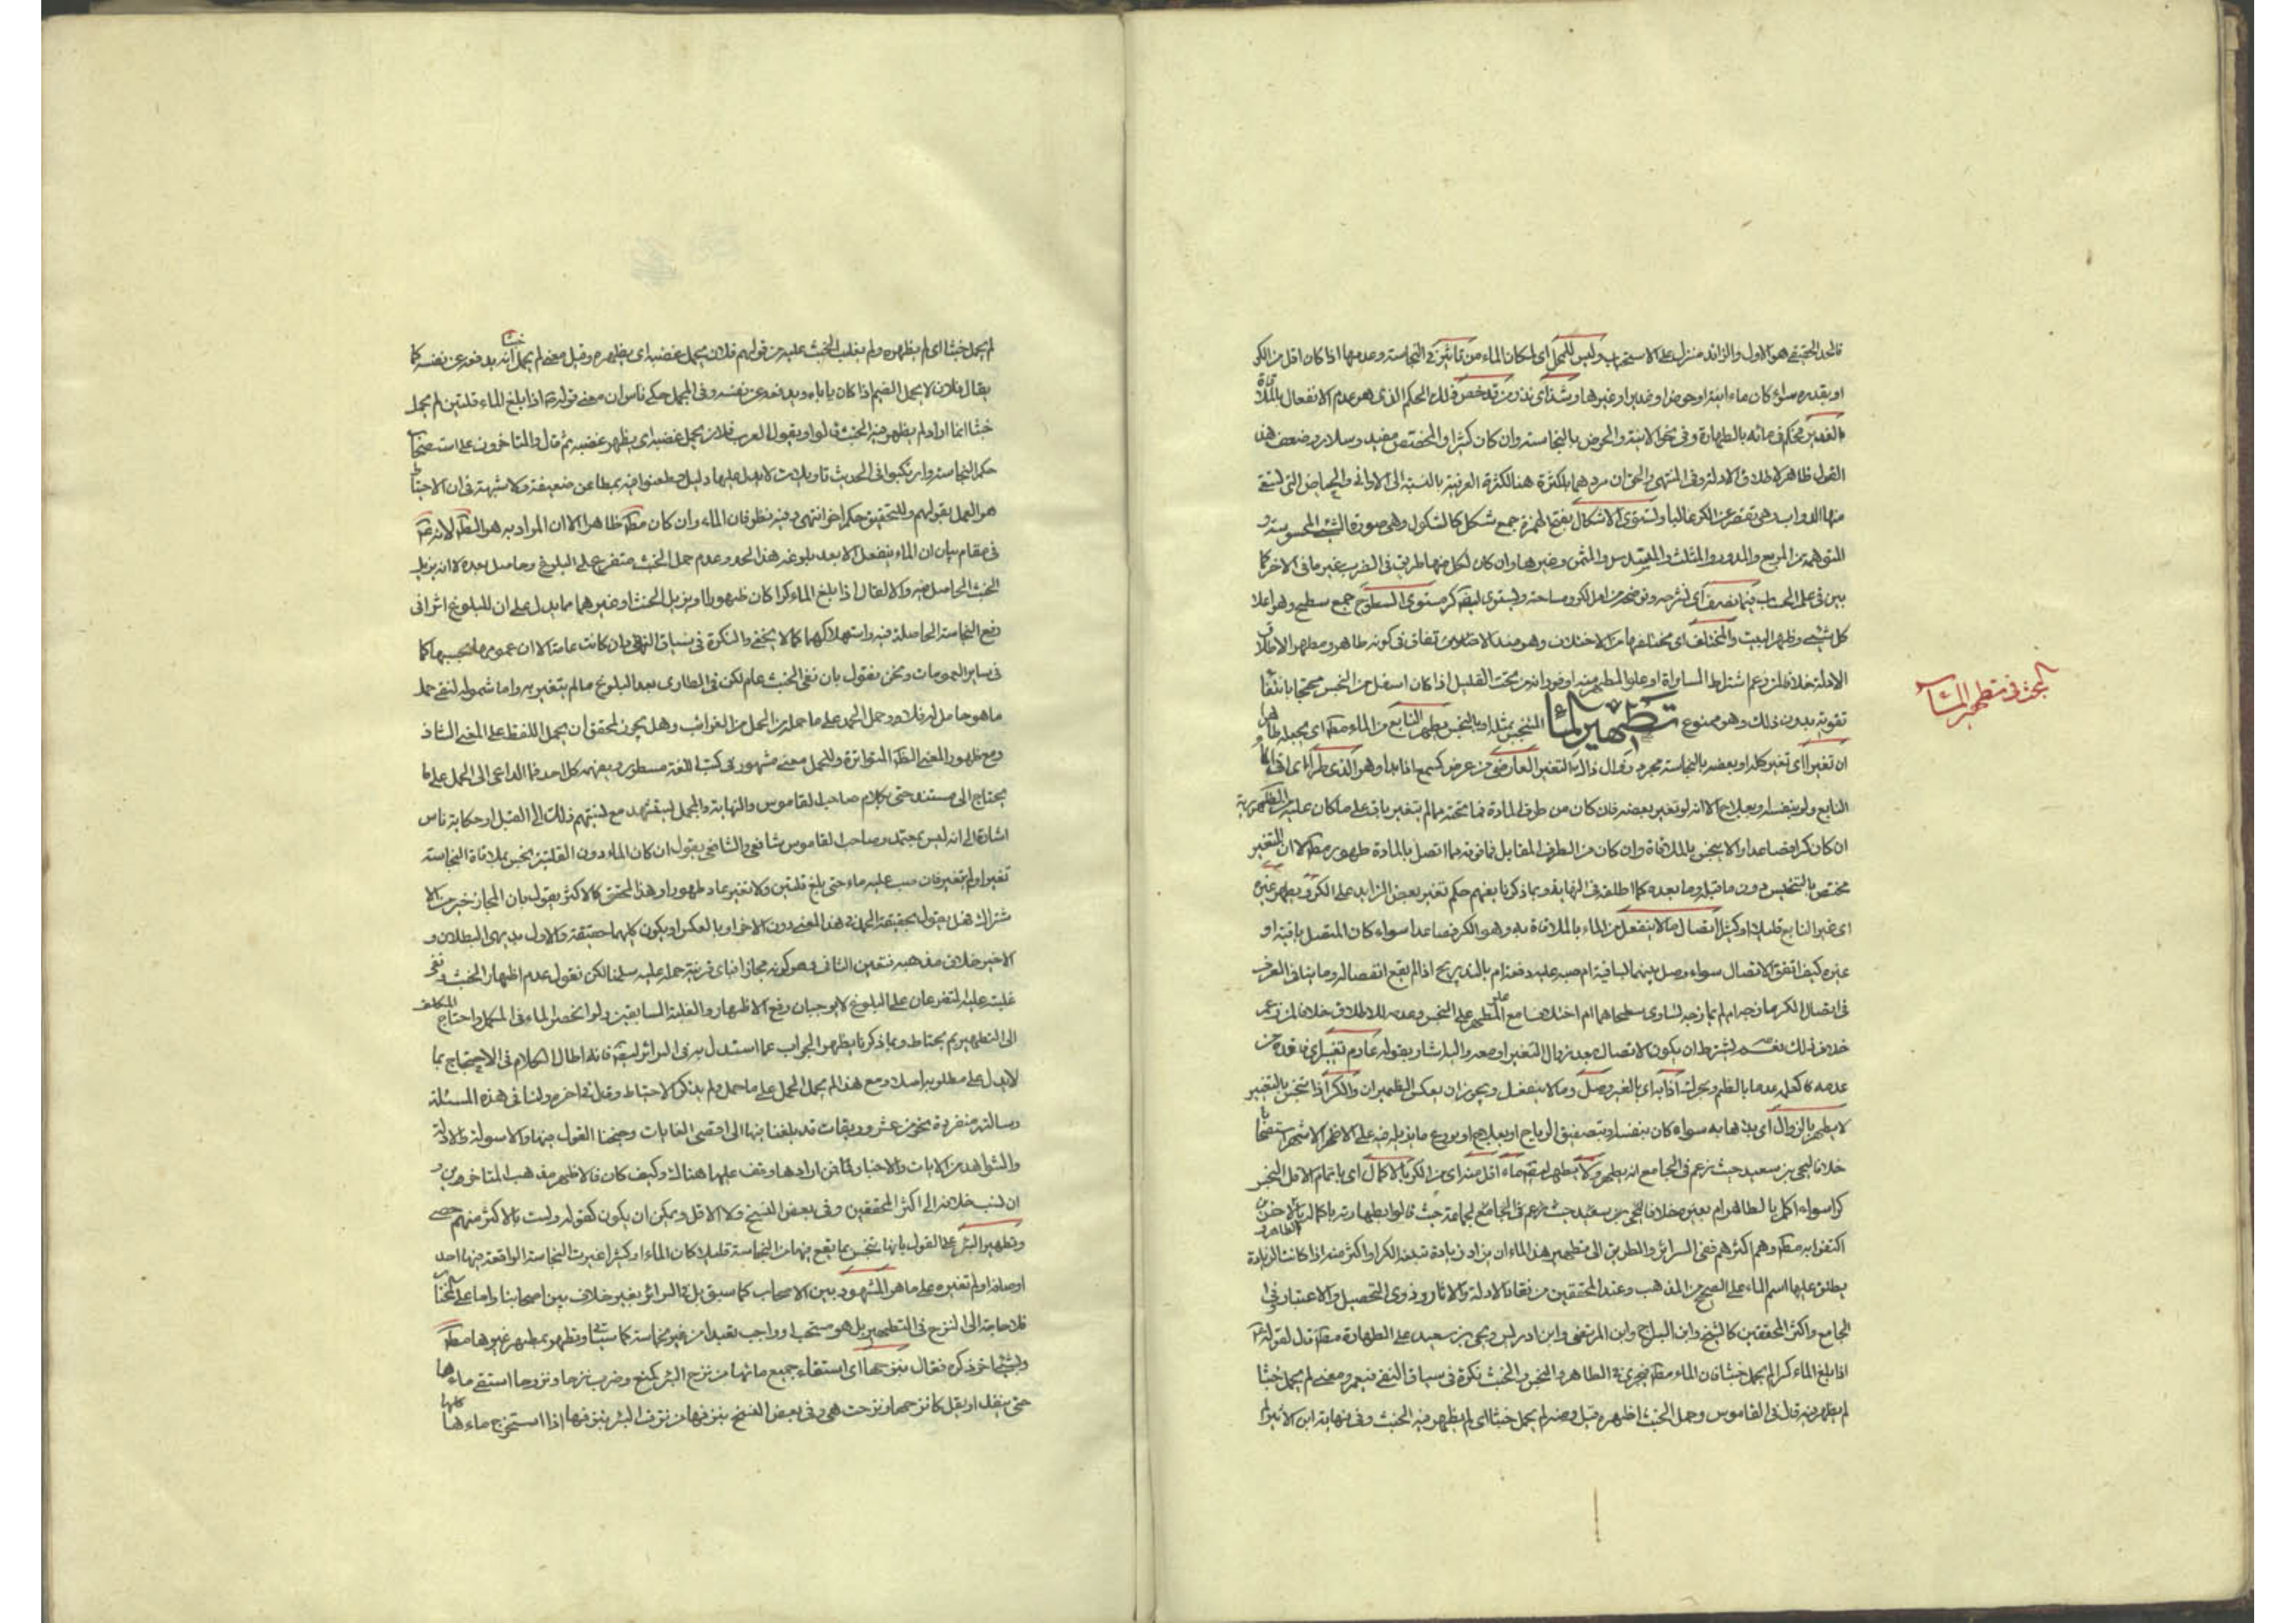 فالحد الحقيقي هو الاول والزائد منزل على الاستحباب وليس للمحل اى لمكان الماء من تاثير فى النجاسة وعدمها اذا كان اقل من الكر
او بقدره سواء كان ماء انية او حوض او غدير او غيرها وشذ اى ندر من قد خص ذلك الحكم الذى هو عدم الانفعال بالملاقاة
بالغدير فحكم فى مائه بالطهارة وفى نحو الانية والحوض بالنجاسة وان كان كثيرا والمختص مفيد وسلار وضعف هذا
القول ظاهر لاطلاق الادلة وفى المنتهى والحق ان مردهما بالكثرة هنا الكثرة العرفية بالنسبة الى الاوانى والحياض التى تسقى
منها الدواب وهى تقصر عن الكر غالبا وتستوى الاشكال بفتح الهمزة جمع شكل كالشكول وهى صورة الشئ المحسوسة و
المتوهمة من المربع والمدور والمثلث والمسدس والمثمن وغيرها وان كان لكل منها طريق فى الضرب غير ما فى الاخر كما
بين فى علم الحساب فيما نصرف اى نشرحه ونوضحه من امر الكر ومساحته ويستوى ايضا كر مستوى السطوح جمع سطح وهو اعلا
كل شئ وظهر البيت والمختلف اى مختلفها من الاختلاف وهو ضد الاتفاق فى كونه طاهرا ومطهرا لاطلاق
الادلة خلافا لمن زعم اشتراط المساواة او علو المطهر منه او فورانه من تحت القليل اذا كان اسفل من النجس محتجا بانتفاء
تقويته بدون ذلك وهو ممنوع تطهير الماء المتنجس بمثله او بالنجس يطهر النابع من الماء مط اى يجعله طاهرا
ان تغير اى تغير كله او بعضه بالنجاسة مجرد زوال ذلك التغير العارض من عرض كسمع اذا بدا وهو الذى طرأ اى اذا كان
النابع ولو بنفسه او بعلاج الا انه لو تغير بعضه فان كان من طرفى المادة فما تحته مما لم يتغير باق على ما كان عليه من الطهورية
ان كان كرا فصاعدا والا ينجس بالملاقاة وان كان من الطرف المقابل فما فوقه مما اتصل بالمادة طهور مط الا ان المتغير
مختص بالتنجيس دون ما قبله وما بعده كما اطلقه فى النهاية ومما ذكرنا يفهم حكم تغير بعض الزايد على الكر ويطهر غيره
اى غير النابع قليلا او كثيرا اتصال ما لا ينفعل من الماء بالملاقاة به وهو الكر فصاعدا سواء كان المتصل باقيه او
غيره كيف اتفق الاتصال سواء وصل بينهما بساقية ام صبه عليه دفعة ام بالتدريج اذا لم يقع انفصاله وما ينافى العرف
فى اتصال الكر مازجه ام لم يمازجه تساوى سطحاهما ام اختلفا مع علو المطهر على النجس وعدمه للاطلاق خلافا لمن زعم
خلاف ذلك نعم يشترط ان يكون الاتصال بعد زوال التغير او معه والبه اشار بقوله عادم تغير اى فاقده من
عدمه كعلمه عدما بالظم ويحرك اذا به اى بالغير وصل وما لا ينفعل ويجوز ان يعكس الظهيران والكر اذا تنجس بالتغير
لا يطهر بالزوال اى بذهابه سواء كان بنفسه او بتصفيق الرياح او بعلاج او بوقوع ما يزيله فيه على الاظهر الاشهر استصحابا
خلافا ليحيى بن سعيد حيث زعم فى الجامع انه يطهر ولا يطهر ايضا ماء اقل منه اى من الكر بالاكمال اى باتمام الاقل النجس
كرا سواء اكمل بالطاهر ام بغيره خلافا ليحيى بن سعيد حيث زعم فى الجامع لجماعة حيث قالوا بطهارته باكماله بالاخر من الطاهر و
اكتفوا به مط وهم اكثرهم ففى السرائر والطريق الى تطهير هذا الماء ان يزاد زيادة تبلغه الكر او اكثر منه اذا كانت الزيادة
يطلق عليها اسم الماء على الصحيح من المذهب وعند المحققين من نقاد الادلة والاثار وذوى التحصيل والاعتبار وفى
الجامع واكثر المحققين كالشيخ وابن البراج وابن المرتضى وابن ادريس ويحيى بن سعيد على الطهارة مط قال لقوله ع
اذا بلغ الماء كرا لم يحمل خبثا فان الماء مط يجرى فى الطاهر والنجس والخبث نكرة فى سياق النفى فيعم ومعنى لم يحمل خبثا
لم يظهر فيه قال فى القاموس وحمل الخبث اظهره قيل ومنه لم يحمل خبثا اى لم يظهر فيه الخبث وفى نهاية ابن الاثير لم
البحث فى تطهير المياه
لم يحمل خبثا اى لم يظهره ولم يغلب الخبث عليه من قولهم فلان يحمل غضبه اى يظهره وقيل معنى لم يحمل خبثا انه يدفعه عن نفسه كما
يقال فلان لا يحمل الضيم اذا كان ياباه ويدفعه عن نفسه وفى المجمل حكى ناس ان معنى قوله ع اذا بلغ الماء قلتين لم يحمل
خبثا انما اراد لم يظهر فيه الخبث قالوا ويقول العرب فلان يحمل غضبه اى يظهر غضبه ثم قال والمتاخرون على استصحاب
حكم النجاسة وارتكبوا فى الحديث تاويلات لا يدل عليها دليل وطعنوا فيه بمطاعن ضعيفة ولا شبهة فى ان الاحتياط
هو العمل بقولهم وللتحقيق حكم اخر انتهى وفيه نظر فان الماء وان كان مط ظاهرا الا ان المراد به هو الطاهر لانه ع
فى مقام بيان ان الماء ينفعل الا بعد بلوغه هذا الحد وعدم حمل الخبث متفرع على البلوغ وحاصل بعده لا انه يزيل
الخبث الحاصل فيه والا لقال اذا بلغ الماء كرا كان طهورا او يزيل الخبث او غيرهما مما يدل على ان للبلوغ اثرا فى
دفع النجاسة الحاصلة فيه واستهلاكها كما لا يخفى والنكرة فى سياق النفى وان كانت عامة الا ان عمومها بحسبها كما
فى ساير العمومات ونحن نقول بان نفى الخبث عام لكن فى الطارى بعد البلوغ ما لم يتغير به واما شموله لنفى حمل
ما هو حامل له فلا وحمل الحمل على ما حمله من الحمل من الغرائب وهل يجوز لمحقق ان يحمل اللفظ على المعنى الشاذ
ومع ظهور المعنى المتواترة وللحمل معنى مشهور فى كتب اللغة مسطور ويفهمه كل احد فما الداعى الى الحمل على ما
يحتاج الى مستند حتى بكلام صاحب القاموس والنهاية والمجمل يستشهد مع نسبتهم ذلك الى القيل او حكاية ناس
اشارة الى انه ليس بمعتمد وصاحب القاموس شافعى والشافعى يقول ان كان الماء دون القلتين نجس بملاقاة النجاسة
تغير او لم يتغير فان صب عليه ماء حتى بلغ قلتين ولا تغير عاد طهورا وهذا المحقق كالاكثر يقول بان المجاز خير من الا
شتراك فهل يقول بحقيقة الحمل فى هذا المعنى دون الاخر او بالعكس او يكون كلهما حقيقة والاول بديهى البطلان و
الاخير خلاف مذهبه فتعين الثانى وهو كونه مجازا فباى قرينة حمله عليه سلمنا لكن نقول عدم اظهار الخبث ونفى
غلبته عليه المتفرعان على البلوغ لا يوجبان رفع الاظهار والغلبة السابقين ولو انحصر الماء فى المكمل واحتاج المكلف
الى التطهير به يحتاط ومما ذكرنا يظهر الجواب عما استدل به فى السرائر ايضا فانه اطال الكلام فى الاحتجاج بما
لا يدل على مطلوبه اصلا ومع هذا لم يحمل الحمل على ما حمل ولم يذكر الاحتياط وقال فى اخره ولنا فى هذه المسئلة
رسالة منفردة نحو من عشر ورقات قد بلغنا فيها الى اقصى الغايات وحججنا القول فيها والاسولة والادلة
والشواهد من الايات والاخبار فمن ارادها وقف عليها هنالك وكيف كان فالاظهر مذهب المتاخرين و
ان نسب خلافه الى اكثر المحققين وفى بعض النسخ ولا الاقل ويمكن ان يكون كقوله ولست بالاكثر منهم حصى
وتطهير البئر على القول بانها تنجس بما يقع فيها من النجاسة قليلا كان الماء او كثيرا غيرت النجاسة الواقعة فيها احد
اوصافه او لم تغيره على ما هو المشهور بين الاصحاب كما سبق بل فى السرائر بغير خلاف بين اصحابنا واما على المختار
فلا حاجة الى النزح فى التطهير بل هو مستحب او واجب تعبدا من غير نجاسة كما سياتى وتطهر بمطهر غيرها مط
وبشئ اخر ذكره فقال بنزحها اى استقاء جميع مائها من نزح البئر كمنع وضرب نزحا ونزوحا استقى ماءها
حتى ينفد او يقل كانزحها ونزحت هى وفى بعض النسخ بنزفها من نزف البئر ينزفها اذا استخرج ماءها كلها